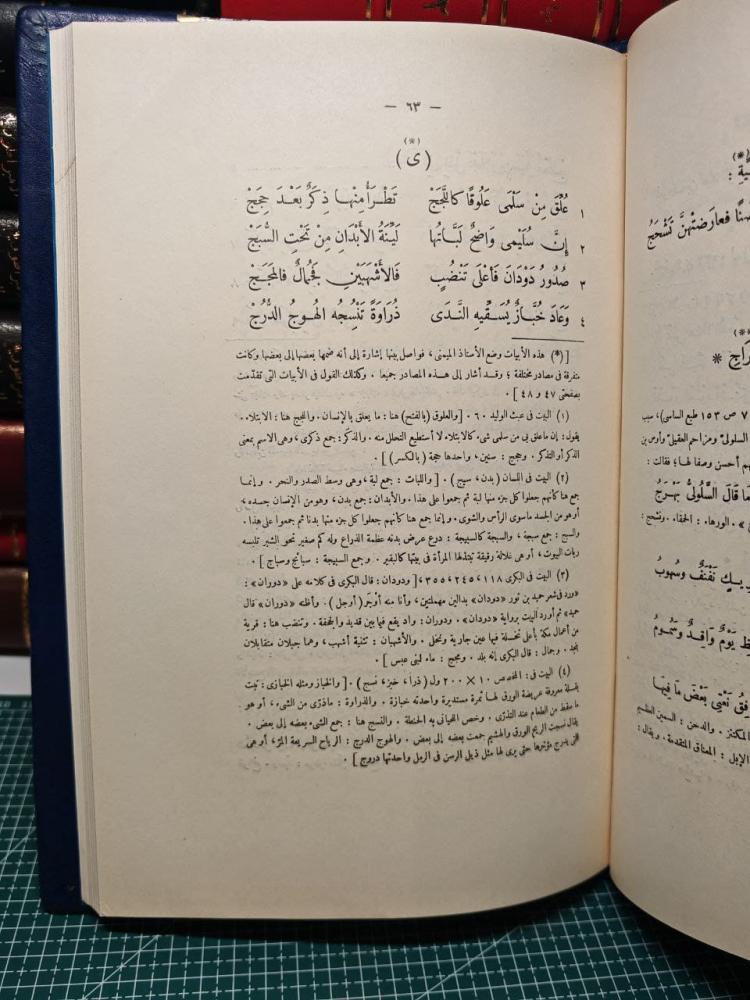 — ٦٣ —
(*)
(ى)
١ عُلِّقَ مِنْ سَلْمَى عَلُوقًا كاللَّجَجْ تَطْرَأُ مِنْهَا ذِكَرٌ بَعْدَ حِجَجْ
٢ إِنَّ سُلَيْمى وَاضِحٌ لَبَّاتُها لَيِّنَةُ الأَبْدَانِ مِنْ تَحْتِ السُّبَجْ
٣ صُدُورُ دَوْدَانَ فَأَعْلَى تَنْضُبٍ فَالأَشْهَبَيْنِ فَجُمَالٌ فالمَجَجْ
٤ وَعَادَ خُبَّازٌ يُسَقِّيهِ النَّدَى ذُرَاوَةً تَنْسِجُه الهُوجُ الدُّرُجْ
[ (*) هذه الأبيات وضع الأستاذ الميمنى ، فواصل بينها إشارة إلى أنه ضمها بعضها إلى بعضها وكانت
متفرقة فى مصادر مختلفة ؛ وقد أشار إلى هذه المصادر جميعا . وكذلك القول فى الأبيات التى تقدّمت
بصفحتى ٤٧ و ٤٨ ] .
(١) البيت فى عبث الوليد ٦٠ . [ والعلوق (بالفتح) هنا : ما يعلق بالإنسان . واللجج هنا : الابتلاء .
يقول : إن ما علق بى من سلمى شىء كالابتلاء لا أستطيع التحلل منه . والذكَر : جمع ذكرى ، وهى الاسم بمعنى
الذكر أو التذكر . وحجج : سنين ، واحدها حجة (بالكسر) ] .
(٢) البيت فى اللسان (بدن ، سبج) . [ واللبات : جمع لبة ، وهى وسط الصدر والنحر . وإنما
جمع هنا كأنهم جعلوا كل جزء منها لبة ثم جمعوا على هذا . والأبدان : جمع بدن ، وهو من الإنسان جسده ،
أو هو من الجسد ما سوى الرأس والشوى . وإنما جمع هنا كأنهم جعلوا كل جزء منها بدنا ثم جمعوا على هذا .
والسبج : جمع سبجة ، والسبجة كالسبيجة : درع عرض بدنه عظمة الذراع وله كم صغير نحو الشبر تلبسه
ربات البيوت ، أو هى غلالة رقيقة تبتذلها المرأة فى بيتها كالبقير . وجمع السبيجة : سبائج وسباج ] .
(٣) البيت فى البكرى ١١٨ ، ٢٤٥ ، ٣٥٥ . [ ودودان : قال البكرى فى كلامه على «دوران» :
«ورد فى شعر حميد بن ثور «دودان» بدالين مهملتين ، وأنا منه أوجَر (أوجل) . وأظنه «دوران» قال
حميد» ثم أورد البيت برواية «دودان» . ودوران : واد يقع فيما بين قديد والجحفة . وتنضب هنا : قرية
من أعمال مكة بأعلى نخلة فيها عين جارية ونخل . والأشهبان : تثنية أشهب ، وهما جبلان متقابلان
بنجد . وجمال : قال البكرى إنه بلد . ومجج : ماء لبنى عبس ] .
(٤) البيت فى : المخصص ١٠ × ٢٠٠ ول (ذرا ، خبز ، نسج) . [ والخباز ومثله الخبازى : نبت
بقلة معروفة عريضة الورق لها ثمرة مستديرة واحدته خبازة . والذراوة : ماذرى من الشىء ، أو هو
ما سقط من الطعام عند التذرى . وخص اللحيانى به الحنطة . والنسج هنا : جمع الشىء بعضه إلى بعض .
يقال نسجت الريح الورق والهشيم جمعت بعضه إلى بعض . والهوج الدرج : الرياح السريعة المرّ ، أو هى
التى يدرج مؤخرها حتى يرى لها مثل ذيل الرسن فى الرمل واحدتها دروج ] .